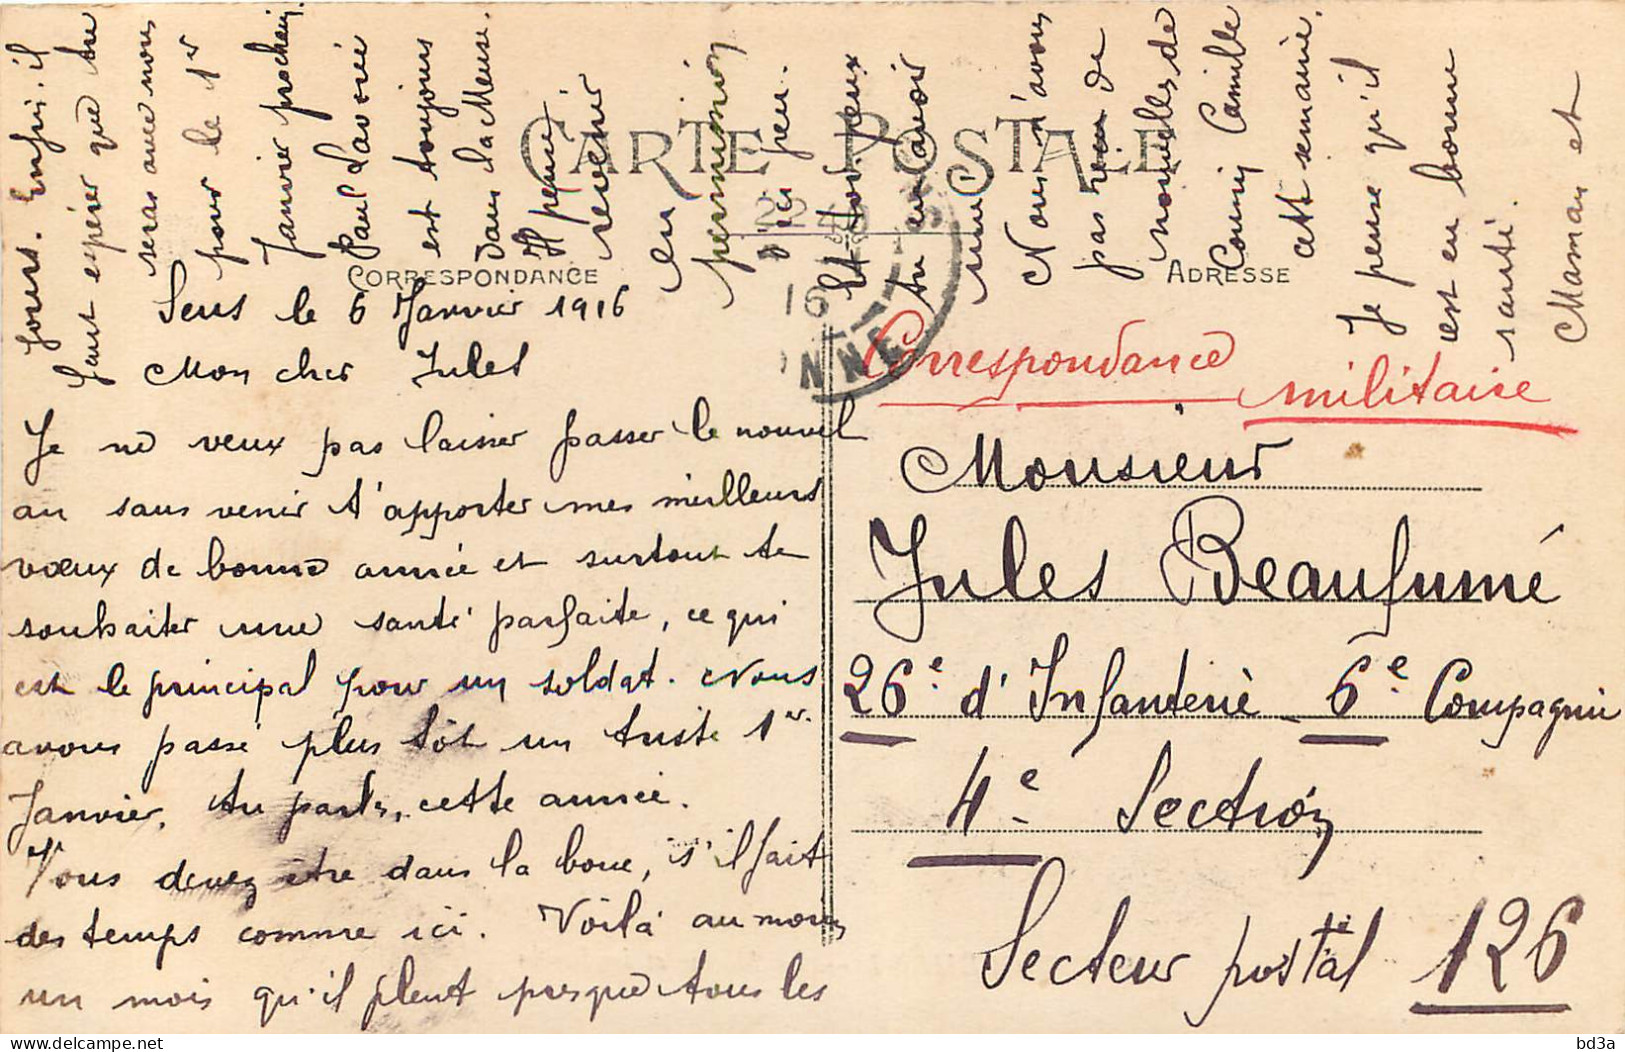 CARTE POSTALE
CORRESPONDANCE
ADRESSE
Sens le 6 Janvier 1916
Mon cher Jules
Je ne veux pas laisser passer le nouvel
an sans venir t'apporter mes meilleurs
vœux de bonne année et surtout te
souhaiter une santé parfaite, ce qui
est le principal pour un soldat. Nous
avons passé plus tôt un triste 1er
Janvier, tu parles, cette année.
Vous devez être dans la boue, s'il fait
des temps comme ici. Voilà au moins
un mois qu'il pleut presque tous les
jours. Enfin, il
faut espérer que tu
seras avec nous
pour le 1er
Janvier prochain.
Paul Lavoiée
est toujours
dans la Meuse.
Il pense
revenir
en
permission
d'ici peu.
tu en avoir
une
Nous n'avons
pas reçu de
nouvelles de
Cousin Camille
cette semaine.
Je pense qu'il
est en bonne
santé.
Maman et
Correspondance
militaire
Monsieur
Jules Beaufumé
26e d'Infanterie - 6e Compagnie
4e Section
Secteur postal 126
16
NNE
bd3a